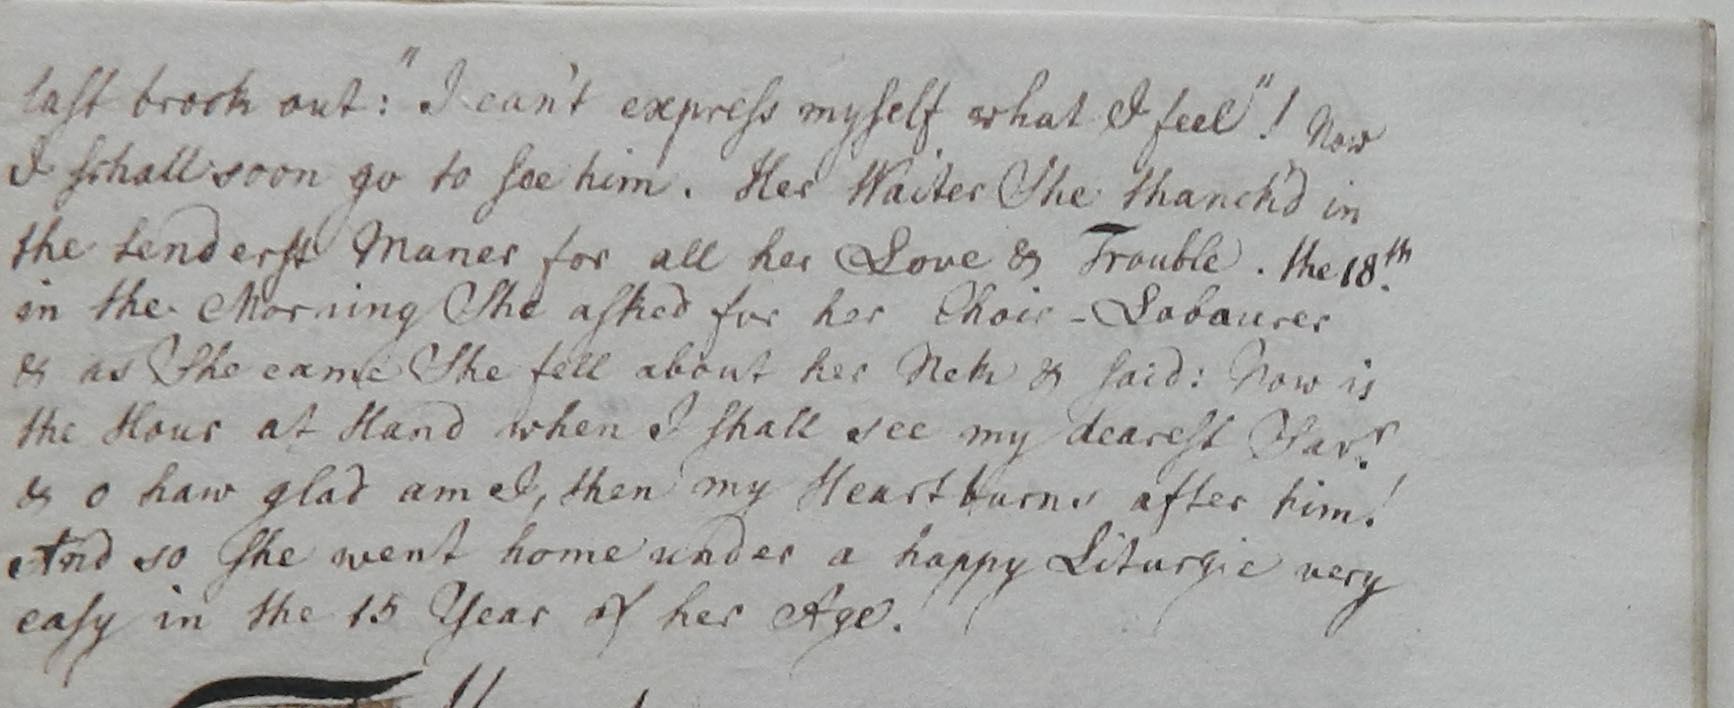 last brook out: "I can't express myself what I feel"! Now
I schall soon go to see him. Her Waiter She thanck'd in
the tenderst Maner for all her Love & Trouble. the 18th.
in the Morning She asked for her Choir-Labaurer
& as She came She fell about her Nek & said: Now is
the Hour at Hand when I shall see my dearest Savr.
& o haw glad am I, then my Heart burns after him!
And so She went home under a happy Liturgie very
easy in the 15 Year of her Age.